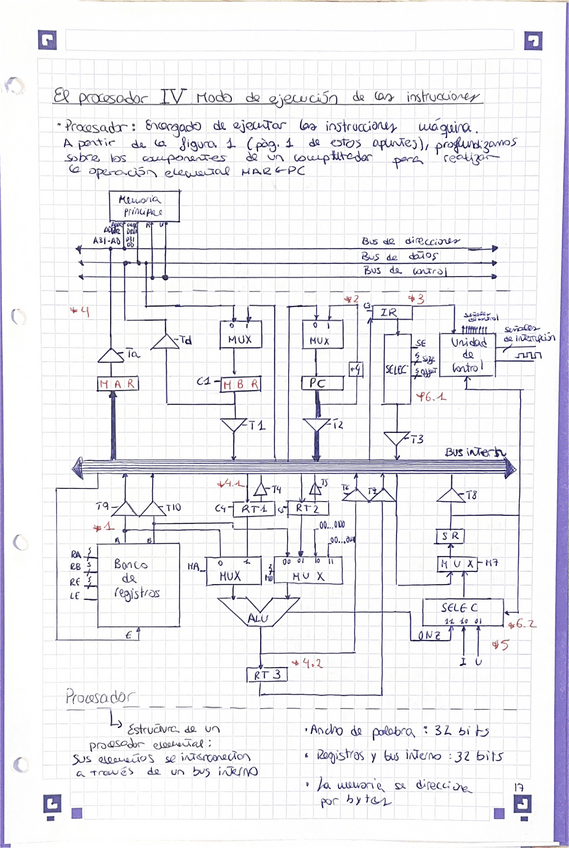 El procesador IV Modo de ejecución de las instrucciones
· Procesador: Encargado de ejecutar las instrucciones máquina.
A partir de la figura 1 (pág. 1 de estos apuntes), profundizamos
sobre los componentes de un computador para realizar
la operación elemental MAR←PC
Memoria
Principal
A31-A0
Bus de direcciones
Bus de datos
Bus de control
*4
*2
*3
Ta
Td
0 1
MUX
0 1
MUX
IR
señales
de control
Unidad
de
control
señales
de interrupción
SELEC
SE
size
offset
*6.1
MAR
C1
MBR
PC
+4
T1
T2
T3
Bus interno
T9
T10
*4.1
T4
T5
T6
T7
T8
C4
RT1
RT2
*1
A
B
00...0100
SR
RA
RB
RE
LE
Banco
de
registros
E
MA
0 1
MUX
00 01 10 11
MUX
MUX
M7
ALU
SELEC
11 10 01
*6.2
*5
I U
RT3
*4.2
Procesador
Estructura de un
procesador elemental:
Sus elementos se interconectan
a través de un bus interno
· Ancho de palabra : 32 bits
· Registros y bus interno : 32 bits
· La memoria se direcciona
por bytes
17